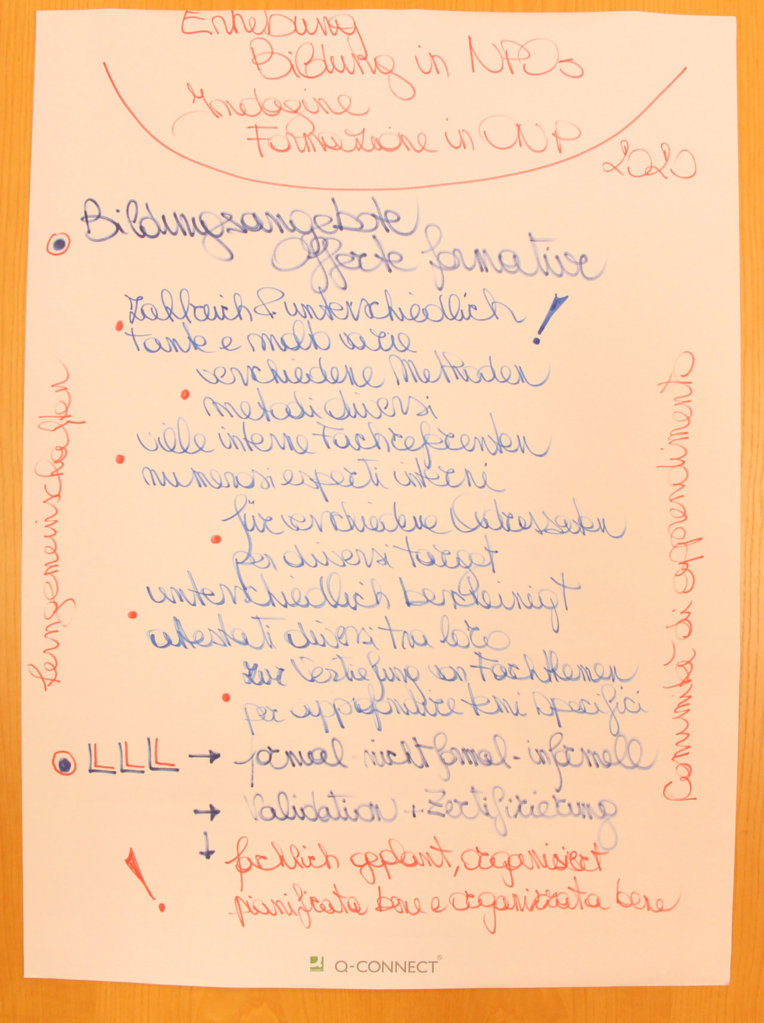 Erhebung
Bildung in NPOs
Indagine
Formazione in ONP
2020
Bildungsangebote
Offerte formative
zahlreich & unterschiedlich !
tante e molto varie
verschiedene Methoden
metodi diversi
viele interne Fachreferenten
numerosi esperti interni
für verschiedene Adressaten
per diversi target
unterschiedlich bescheinigt
attestati diversi tra loro
zur Vertiefung von Fachthemen
per approfondire temi specifici
LLL → formal - nicht formal - informell
→ Validation + Zertifizierung
↓ fachlich geplant, organisiert
! pianificata bene e organizzata bene
Lerngemeinschaften
Comunità di apprendimento
Q-CONNECT®